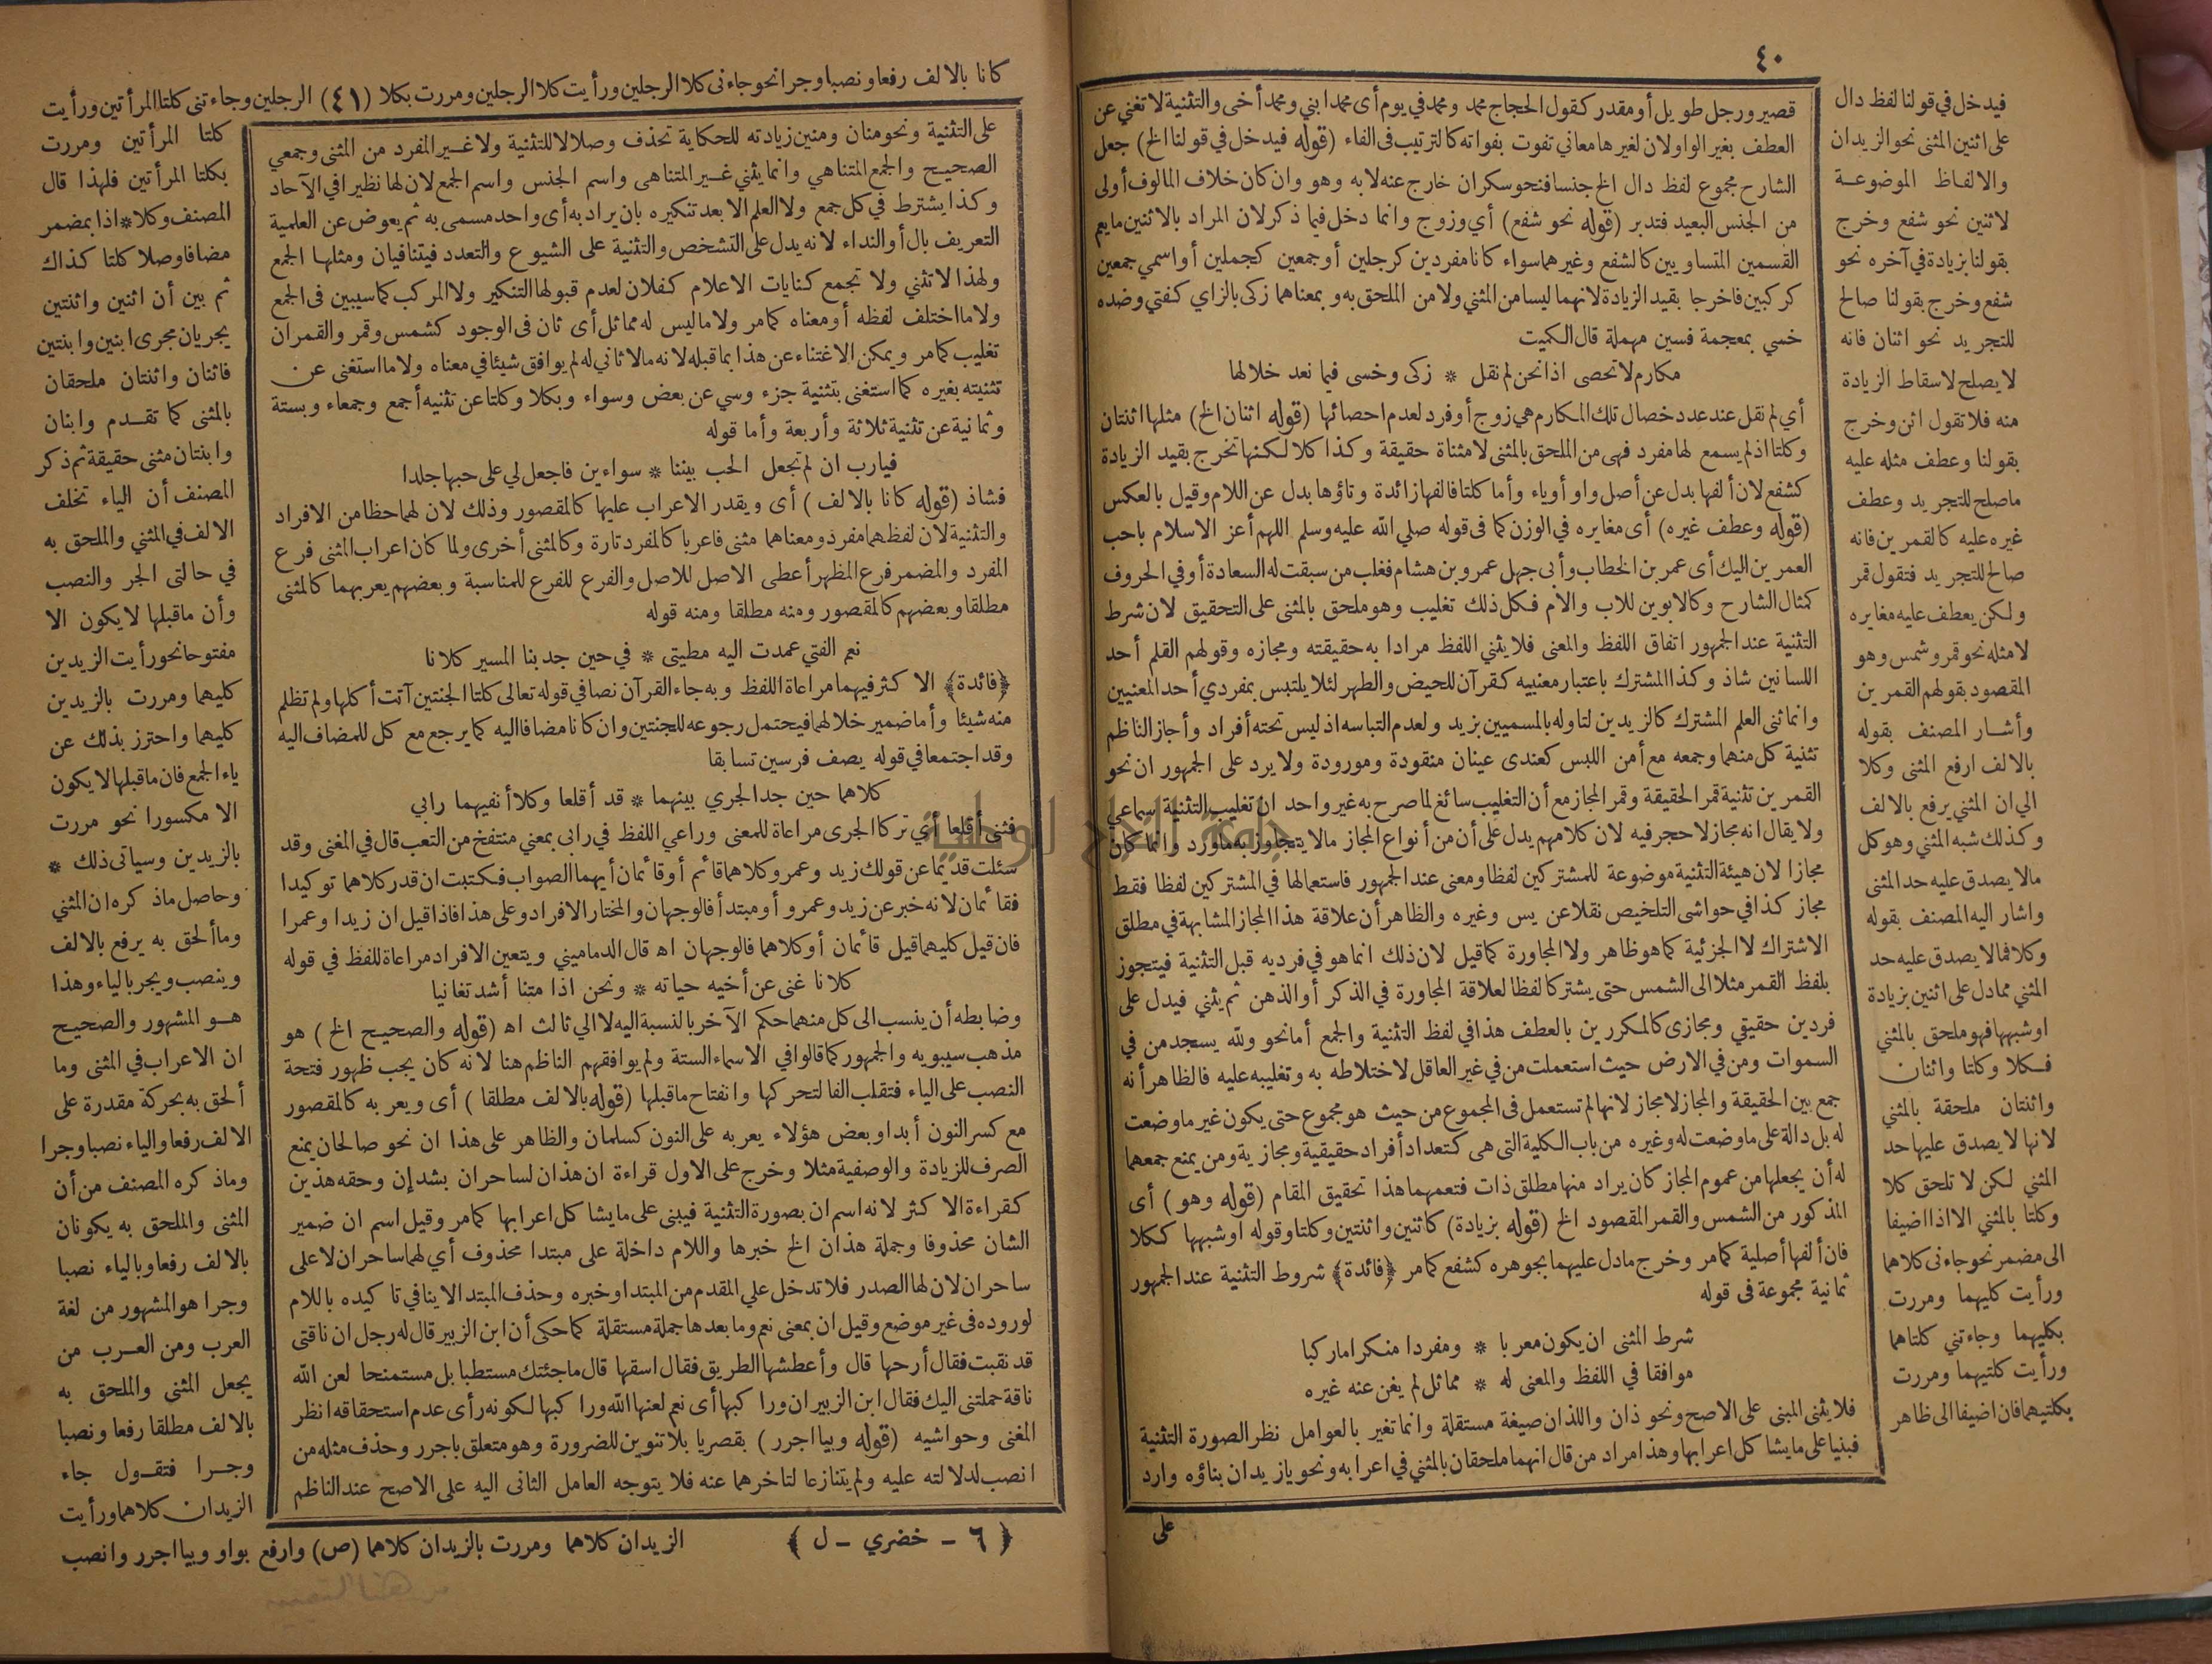 ٤٠
قصير ورجل طويل أو مقدر كقول الحجاج محمد ومحمد في يوم أى محمد ابني ومحمد أخى والتثنية لا تغني عن
العطف بغير الواو لان لغيرها معاني تفوت بفواته كالترتيب فى الفاء (قوله فيدخل في قولنا الخ) جعل
الشارح مجموع لفظ دال الخ جنسا فنحو سكران خارج عنه لا به وهو وان كان خلاف المالوف أولى
من الجنس البعيد فتدبر (قوله نحو شفع) أي وزوج وانما دخل فيما ذكر لان المراد بالاثنين ما يعم
القسمين المتساويين كالشفع وغيرهما سواء كانا مفردين كرجلين أو جمعين كجملين أو اسمي جمعين
كركبين فاخرجا بقيد الزيادة لانهما ليسا من المثني ولا من الملحق به و بمعناهما زكى بالزاي كفتي وضده
خسي بمعجمة فسين مهملة قال الكميت
مكارم لا تحصى اذا نحن لم نقل * زكى وخسى فيما نعد خلالها
أي لم نقل عند عدد خصال تلك المكارم هي زوج أو فرد لعدم احصائها (قوله اثنان الخ) مثلها اثنتان
وكلتا اذ لم يسمع لها مفرد فهى من الملحق بالمثنى لا مثناة حقيقة وكذا كلا لكنها تخرج بقيد الزيادة
كشفع لان ألفها بدل عن أصل واو أو ياء وأما كلتا فالفها زائدة وتاؤها بدل عن اللام وقيل بالعكس
(قوله وعطف غيره) أى مغايره في الوزن كما فى قوله صلي الله عليه وسلم اللهم أعز الاسلام باحب
العمرين اليك أى عمر بن الخطاب وأبى جهل عمرو بن هشام فغلب من سبقت له السعادة أو في الحروف
كمثال الشارح وكالابوين للاب والام فكل ذلك تغليب وهو ملحق بالمثنى على التحقيق لان شرط
التثنية عند الجمهور اتفاق اللفظ والمعنى فلا يثني اللفظ مرادا به حقيقته ومجازه وقولهم القلم أحد
اللسانين شاذ وكذا المشترك باعتبار معنييه كقرآن للحيض والطهر لئلا يلتبس بمفردي أحد المعنيين
وانما ثنى العلم المشترك كالزيدين لتاوله بالمسميين بزيد ولعدم التباسه اذ ليس تحته أفراد وأجاز الناظم
تثنية كل منهما وجمعه مع أمن اللبس كعندى عينان منقودة ومورودة ولا يرد على الجمهور ان نحو
القمرين تثنية قمر الحقيقة وقمر المجاز مع أن التغليب سائغ لما صرح به غير واحد ان تغليب التثنية سماعي
ولا يقال انه مجاز لا حجر فيه لان كلامهم يدل على أن من أنواع المجاز ما لا يتجاوز به ماورد وانما كان
مجازا لان هيئة التثنية موضوعة للمشتركين لفظا ومعنى عند الجمهور فاستعمالها في المشتركين لفظا فقط
مجاز كذا في حواشى التلخيص نقلا عن يس وغيره والظاهر أن علاقة هذا المجاز المشابهة في مطلق
الاشتراك لا الجزئية كما هو ظاهر ولا المجاورة كما قيل لان ذلك انما هو في فرديه قبل التثنية فيتجوز
بلفظ القمر مثلا الى الشمس حتى يشتركا لفظا لعلاقة المجاورة في الذكر أو الذهن ثم يثني فيدل على
فردين حقيقي ومجازى كالمكررين بالعطف هذا في لفظ التثنية والجمع أما نحو ولله يسجد من في
السموات ومن في الارض حيث استعملت من في غير العاقل لاختلاطه به وتغليبه عليه فالظاهر أنه
جمع بين الحقيقة والمجاز لا مجاز لانها لم تستعمل فى المجموع من حيث هو مجموع حتى يكون غير ماوضعت
له بل دالة على ما وضعت له وغيره من باب الكلية التى هى كتعداد أفراد حقيقية ومجازية ومن يمنع جمعهما
له أن يجعلها من عموم المجاز كان يراد منها مطلق ذات فتعمهما هذا تحقيق المقام (قوله وهو) أى
المذكور من الشمس والقمر المقصود الخ (قوله بزيادة) كاثنين واثنتين وكلتا وقوله او شبهها ككلا
فان ألفها أصلية كما مر وخرج مادل عليهما بجوهره كشفع كما مر ﴿فائدة﴾ شروط التثنية عند الجمهور
ثمانية مجموعة فى قوله
شرط المثنى ان يكون معربا * ومفردا منكرا ما ركبا
موافقا في اللفظ والمعنى له * مماثل لم يغن عنه غيره
فلا يثنى المبنى على الاصح ونحو ذان واللذان صيغة مستقلة وانما تغير بالعوامل نظر الصورة التثنية
فبنيا على ما يشا كل اعرابها وهذا مراد من قال انهما ملحقان بالمثني في اعرابه ونحو يا زيدان بناؤه وارد
على
فيدخل في قولنا لفظ دال
على اثنين المثنى نحو الزيدان
والالفاظ الموضوعة
لاثنين نحو شفع وخرج
بقولنا بزيادة في آخره نحو
شفع وخرج بقولنا صالح
للتجريد نحو اثنان فانه
لا يصلح لاسقاط الزيادة
منه فلا تقول اثن وخرج
بقولنا وعطف مثله عليه
ماصلح للتجريد وعطف
غيره عليه كالقمرين فانه
صالح للتجريد فتقول قمر
ولكن يعطف عليه مغايره
لا مثله نحو قمر وشمس وهو
المقصود بقولهم القمرين
وأشار المصنف بقوله
بالالف ارفع المثنى وكلا
الي ان المثني يرفع بالالف
وكذلك شبه المثني وهو كل
مالا يصدق عليه حد المثنى
واشار اليه المصنف بقوله
وكلا فما لا يصدق عليه حد
المثني ممادل على اثنين بزيادة
او شبهها فهو ملحق بالمثني
فكلا وكلتا واثنان
واثنتان ملحقة بالمثني
لانها لا يصدق عليها حد
المثني لكن لا تلحق كلا
وكلتا بالمثني الا اذا اضيفا
الى مضمر نحو جاءنى كلاهما
ورأيت كليهما ومررت
بكليهما وجاءتني كلتاهما
ورأيت كلتيهما ومررت
بكلتيهما فان اضيفا الى ظاهر
كانا بالالف رفعا ونصبا وجرا نحو جاءنى كلا الرجلين ورأيت كلا الرجلين ومررت بكلا (٤١) الرجلين وجاءتني كلتا المرأتين ورأيت
كلتا المرأتين ومررت
بكلتا المرأتين فلهذا قال
المصنف وكلا * اذا بمضمر
مضافا وصلا كلتا كذاك
ثم بين أن اثنين واثنتين
يجريان مجرى ابنين وابنتين
فاثنان واثنتان ملحقان
بالمثنى كما تقدم وابنان
وابنتان مثنى حقيقة ثم ذكر
المصنف أن الياء تخلف
الالف في المثني والملحق به
في حالتى الجر والنصب
وأن ماقبلها لا يكون الا
مفتوحا نحو رأيت الزيدين
كليهما ومررت بالزيدين
كليهما واحترز بذلك عن
ياء الجمع فان ماقبلها لا يكون
الا مكسورا نحو مررت
بالزيدين وسياتى ذلك *
وحاصل ماذكره ان المثني
وما ألحق به يرفع بالالف
وينصب ويجر بالياء وهذا
هو المشهور والصحيح
ان الاعراب في المثنى وما
ألحق به بحركة مقدرة على
الالف رفعا والياء نصبا وجرا
وماذكره المصنف من أن
المثنى والملحق به يكونان
بالالف رفعا وبالياء نصبا
وجرا هو المشهور من لغة
العرب ومن العرب من
يجعل المثنى والملحق به
بالالف مطلقا رفعا ونصبا
وجرا فتقول جاء
الزيدان كلاهما ورأيت
الزيدان كلاهما ومررت بالزيدان كلاهما (ص) وارفع بواو وبيا اجرر وانصب
على التثنية ونحو منان ومنين زيادته للحكاية تحذف وصلا لا للتثنية ولا غير المفرد من المثنى وجمعي
الصحيح والجمع المتناهي وانما يثني غير المتناهى واسم الجنس واسم الجمع لان لها نظيرا في الآحاد
وكذا يشترط في كل جمع ولا العلم الا بعد تنكيره بان يراد به أى واحد مسمى به ثم يعوض عن العلمية
التعريف بال أو النداء لانه يدل على التشخص والتثنية على الشيوع والتعدد فيتنافيان ومثلها الجمع
ولهذا لا تثني ولا تجمع كنايات الاعلام كفلان لعدم قبولها التنكير ولا المركب كما سيبين فى الجمع
ولا ما اختلف لفظه أو معناه كما مر ولا ماليس له مماثل أى ثان فى الوجود كشمس وقمر والقمران
تغليب كما مر ويمكن الاغتناء عن هذا بما قبله لانه مالا ثاني له لم يوافق شيئا في معناه ولا ما استغنى عن
تثنيته بغيره كما استغنى بتثنية جزء وسي عن بعض وسواء وبكلا وكلتا عن تثنيه أجمع وجمعاء وبستة
وثمانية عن تثنية ثلاثة وأربعة وأما قوله
فيارب ان لم تجعل الحب بيننا * سواءين فاجعل لي على حبها جلدا
فشاذ (قوله كانا بالالف) أى ويقدر الاعراب عليها كالمقصور وذلك لان لهما حظا من الافراد
والتثنية لان لفظهما مفرد ومعناهما مثنى فاعربا كالمفرد تارة وكالمثنى أخرى ولما كان اعراب المثنى فرع
المفرد والمضمر فرع المظهر أعطى الاصل للاصل والفرع للفرع للمناسبة وبعضهم يعربهما كالمثنى
مطلقا وبعضهم كالمقصور ومنه مطلقا ومنه قوله
نعم الفتي عمدت اليه مطيتى * في حين جد بنا المسير كلانا
﴿فائدة﴾ الاكثر فيهما مراعاة اللفظ وبه جاء القرآن نصا في قوله تعالى كلتا الجنتين آتت أكلها ولم تظلم
منه شيئا وأما ضمير خلالهما فيحتمل رجوعه للجنتين وان كانا مضافا اليه كما يرجع مع كل للمضاف اليه
وقد اجتمعا في قوله يصف فرسين تسابقا
كلاهما حين جد الجري بينهما * قد أقلعا وكلا أنفيهما رابي
فثنى أقلعا أي تركا الجرى مراعاة للمعنى وراعي اللفظ في رابى بمعني منتفخ من التعب قال في المغنى وقد
سئلت قديما عن قولك زيد وعمرو كلاهما قائم أو قائمان أيهما الصواب فكتبت ان قدر كلاهما توكيدا
فقائمان لانه خبر عن زيد وعمرو أو مبتدأ فالوجهان والمختار الافراد وعلى هذا فاذا قيل ان زيدا وعمرا
فان قيل كليهما قيل قائمان أو كلاهما فالوجهان اه قال الدماميني ويتعين الافراد مراعاة للفظ في قوله
كلانا غنى عن أخيه حياته * ونحن اذا متنا أشد تغانيا
وضابطه أن ينسب الى كل منهما حكم الآخر بالنسبة اليه لا الي ثالث اه (قوله والصحيح الخ) هو
مذهب سيبويه والجمهور كما قالوا في الاسماء الستة ولم يوافقهم الناظم هنا لانه كان يجب ظهور فتحة
النصب على الياء فتقلب الفا لتحركها وانفتاح ماقبلها (قوله بالالف مطلقا) أى ويعربه كالمقصور
مع كسر النون أبدا وبعض هؤلاء يعربه على النون كسلمان والظاهر على هذا ان نحو صالحان يمنع
الصرف للزيادة والوصفية مثلا وخرج على الاول قراءة ان هذان لساحران بشد إن وحقه هذين
كقراءة الاكثر لانه اسم ان بصورة التثنية فيبنى على ما يشا كل اعرابها كما مر وقيل اسم ان ضمير
الشان محذوفا وجملة هذان الخ خبرها واللام داخلة على مبتدا محذوف أي لهما ساحران لا على
ساحران لان لها الصدر فلا تدخل علي المقدم من المبتدا وخبره وحذف المبتدا لا ينافي تاكيده باللام
لوروده فى غير موضع وقيل ان بمعنى نعم وما بعدها جملة مستقلة كما حكى أن ابن الزبير قال له رجل ان ناقتى
قد نقبت فقال أرحها قال وأعطشها الطريق فقال اسقها قال ماجئتك مستطبا بل مستمنحا لعن الله
ناقة حملتنى اليك فقال ابن الزبير ان وراكبها أى نعم لعنها الله وراكبها لكونه رأى عدم استحقاقه انظر
المغنى وحواشيه (قوله وبيا اجرر) بقصر يا بلا تنوين للضرورة وهو متعلق باجرر وحذف مثله من
انصب لدلالته عليه ولم يتنازعا لتاخرهما عنه فلا يتوجه العامل الثانى اليه على الاصح عند الناظم
﴿ ٦ - خضري - ل ﴾